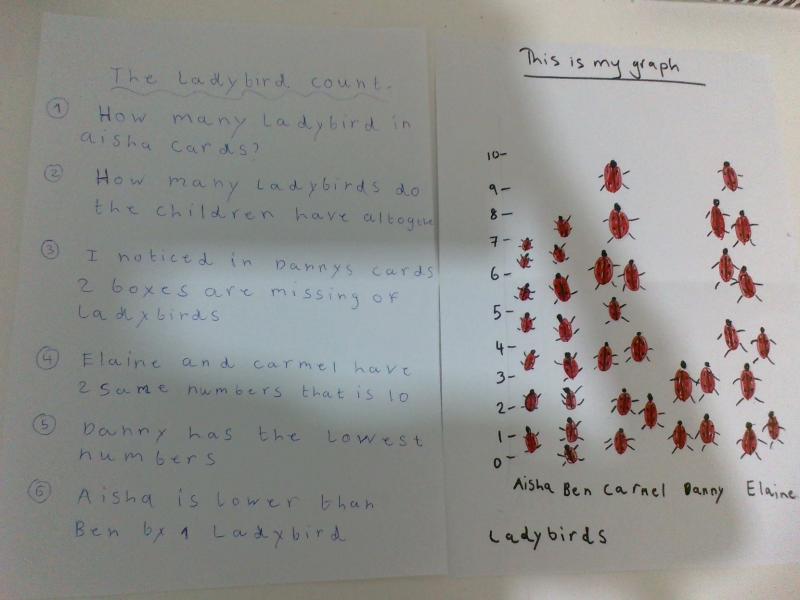 The Ladybird count.
① How many Ladybird in
aisha cards?
② How many Ladybirds do
the children have altogethe
③ I noticed in Dannys cards
2 boxes are missing of
Ladybirds
④ Elaine and carmel have
2 same numbers that is 10
⑤ Danny has the Lowest
numbers
⑥ Aisha is lower than
Ben by 1 Ladybird
This is my graph
10-
9-
8-
7-
6-
5-
4-
3-
2-
1-
0-
Aisha Ben Carmel Danny Elaine
Ladybirds